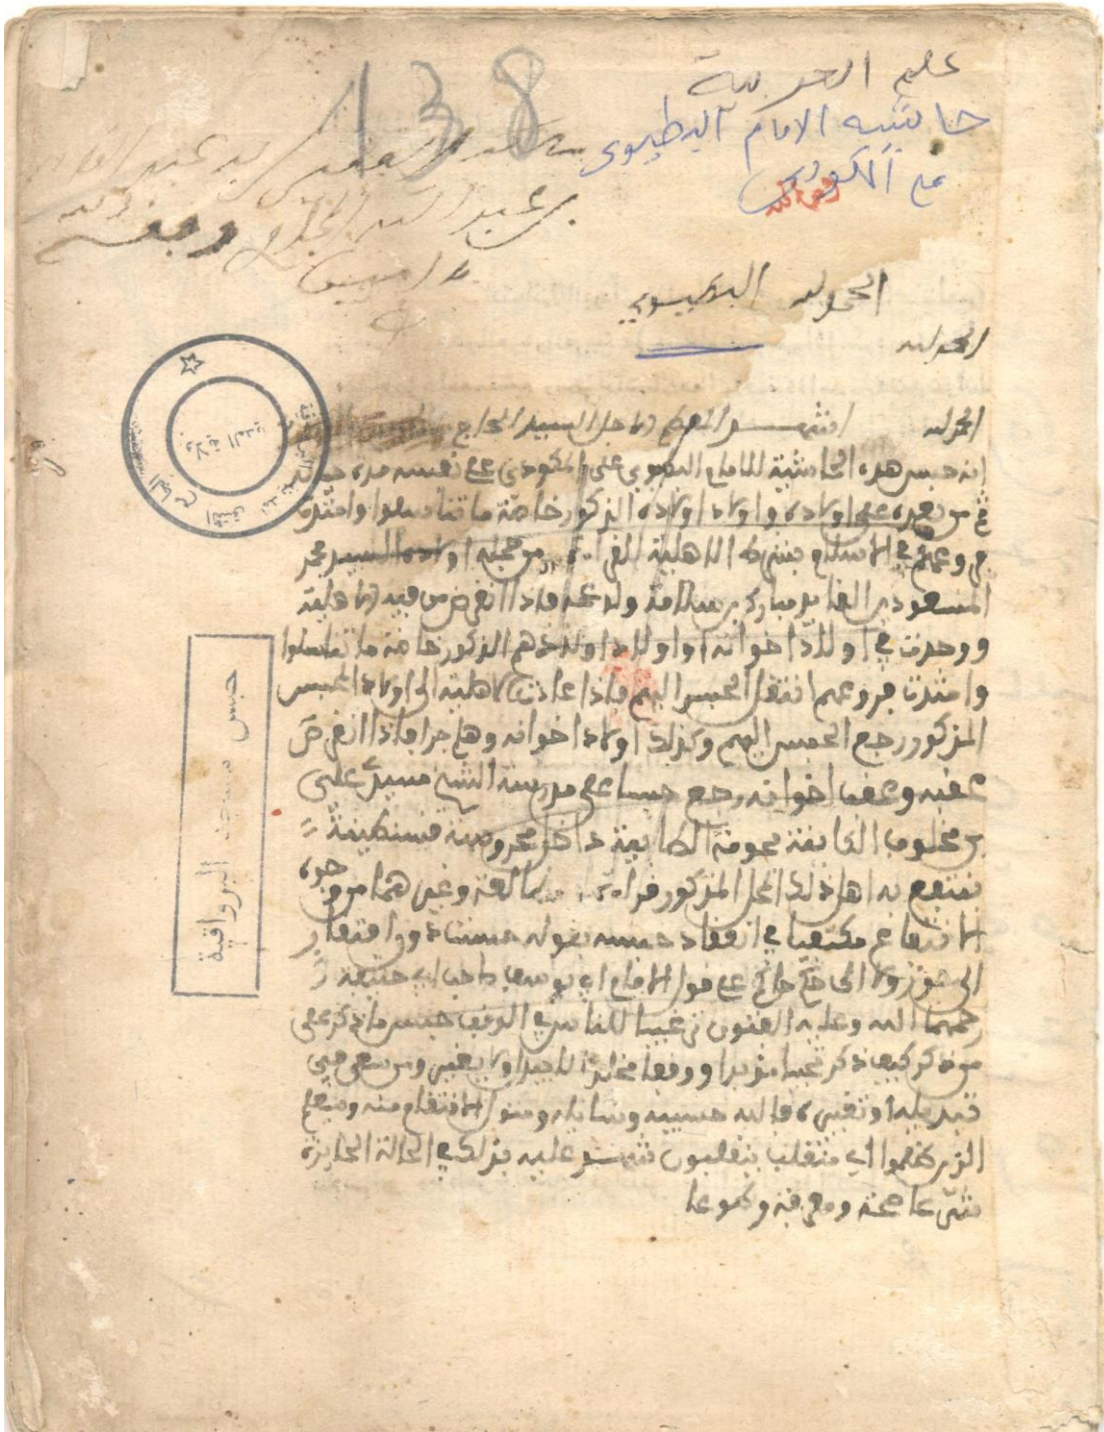 علم العربية
138
حاشية الامام البطيوي
على المكودي
رحمه الله
بن عبد الله
ءامين
الحمد لله البطيوي
الحمد لله
الحمد لله اشهد المعظم الاجل السيد الحاج
انه حبس هذه الحاشية للامام البطيوي على المكودي على نفسه مدة حياته
ثم من بعده على اولاده واولاد اولاده الذكور خاصة ما تناسلوا وامتدت
فروعهم في الاسلام بشرط الاهلية للقراءة من جملة اولاده السيد محمد
المسعود بن القايد مبارك بن سلامة ولد عمه فاذا انقرض من فيه الاهلية
ووجدت في اولاد اخوانه او اولاد اولادهم الذكور خاصة ما تناسلوا
وامتدت فروعهم انتقل الحبس اليهم فاذا عادت الاهلية الى اولاد المحبس
المذكور رجع الحبس اليهم وكذلك اولاد اخوانه وهلم جرا فاذا انقرض
عقبه وعقب اخوانه رجع حبسا على مدرسة الشيخ سيدي علي
بن مخلوف الكاينة بحومة الطابية داخل محروسة قسنطينة
ينتفع به اهل ذلك المحل المذكور قراءة ومطالعة وغيرهما من وجوه
الانتفاع مكتفيا في انعقاد حبسه بقوله حبست دون افتقار
الى حوز ولا الى حكم حاكم على قول الامام ابي يوسف صاحب ابي حنيفة
رحمهما الله وعليه الفتوى ترغيبا للناس في الوقف حبس ما ذكر على
من ذكر كيف ذكر حبسا مؤبدا ووقفا مخلدا لا يبدل ولا يغير ومن سعى في
تبديله او تغييره فالله حسيبه وسايله ومتولي الانتقام منه وسيعلم
الذين ظلموا اي منقلب ينقلبون شهد عليه بذلك في الحالة الجايزة
شرعا صحة ومعرفة وطوعا
حبس مسجد البرواقية
ولاية المدية